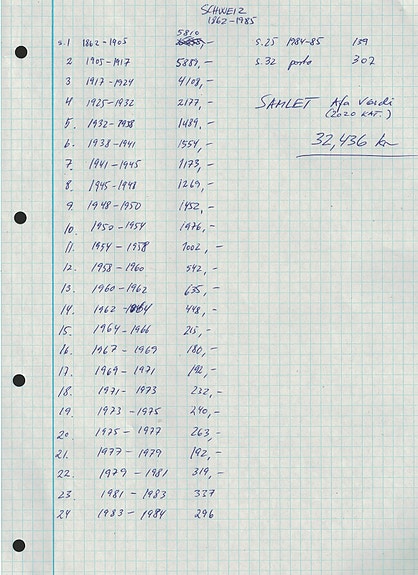 SCHWEIZ
1862-1985
5810
s.1 1862-1905
2 1905-1917 5889,-
3 1917-1924 4108,-
4 1925-1932 2177,-
5. 1932-1938 1489,-
6. 1938-1941 1554,-
7. 1941-1945 1173,-
8. 1945-1948 1269,-
9 1948-1950 1452,-
10. 1950-1954 1976,-
11. 1954-1958 1002,-
12. 1958-1960 542,-
13. 1960-1962 635,-
14. 1962-1964 448,-
15. 1964-1966 215,-
16. 1967-1969 180,-
17. 1969-1971 192,-
18. 1971-1973 232,-
19. 1973-1975 240,-
20 1975-1977 263,-
21. 1977-1979 192,-
22. 1979-1981 319,-
23 1981-1983 337
24 1983-1984 296
s.25 1984-85 139
s.32 porto 302
SAMLET Afa Verdi
(2020 KAT.)
32,436 kr